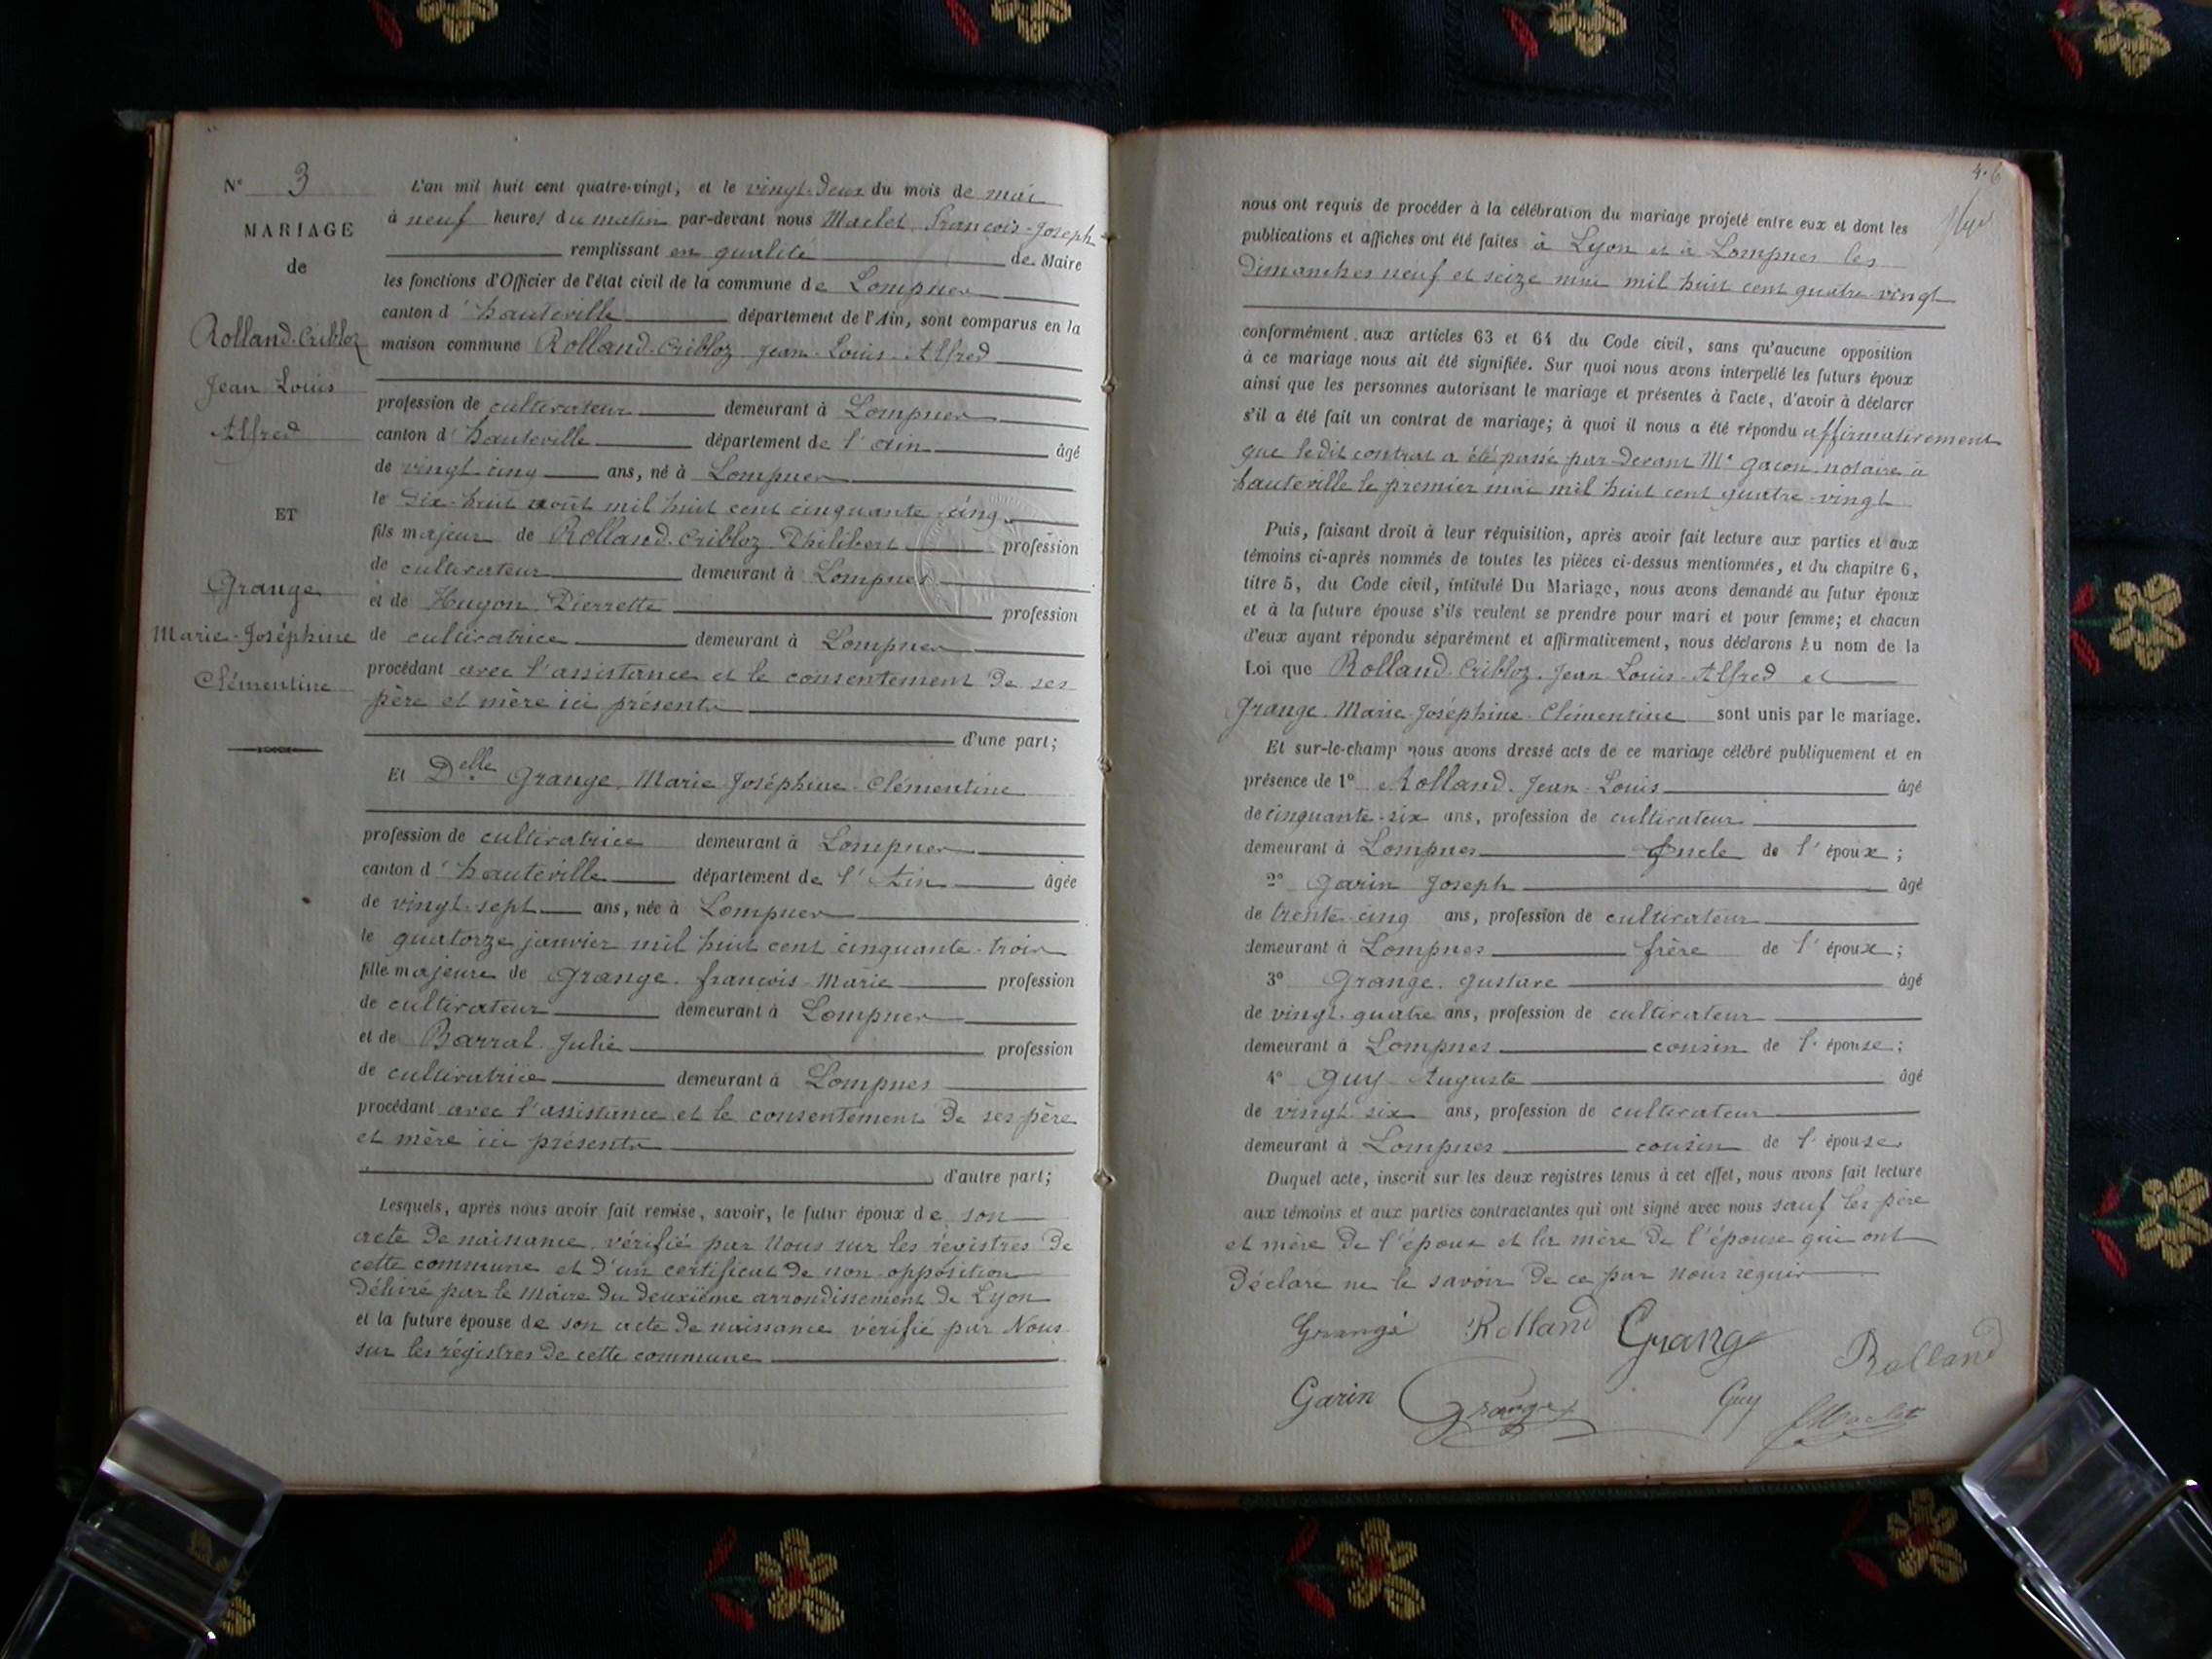 N° 3
MARIAGE
de
Rolland-Cribloz
Jean Louis
Alfred
ET
Grange
Marie-Joséphine
Clémentine
L'an mil huit cent quatre-vingt, et le vingt-deux du mois de mai
à neuf heures du matin par-devant nous Maclet, François-Joseph
remplissant en qualité de Maire
les fonctions d'Officier de l'état civil de la commune de Lompnes
canton d'hauteville département de l'Ain, sont comparus en la
maison commune Rolland-Cribloz Jean-Louis-Alfred
profession de cultivateur demeurant à Lompnes
canton d'hauteville département de l'ain âgé
de vingt cinq ans, né à Lompnes
le dix-huit août mil huit cent cinquante-cinq
fils majeur de Rolland-Cribloz Philibert profession
de cultivateur demeurant à Lompnes
et de Hugon Pierrette profession
de cultivatrice demeurant à Lompnes
procédant avec l'assistance et le consentement de ses
père et mère ici présents
d'une part;
Et Delle Grange, Marie Joséphine Clémentine
profession de cultivatrice demeurant à Lompnes
canton d'hauteville département de l'Ain âgée
de vingt-sept ans, née à Lompnes
le quatorze janvier mil huit cent cinquante-trois
fille majeure de Grange françois Marie profession
de cultivateur demeurant à Lompnes
et de Barral Julie profession
de cultivatrice demeurant à Lompnes
procédant avec l'assistance et le consentement de ses père
et mère ici présents
d'autre part;
Lesquels, après nous avoir fait remise, savoir, le futur époux de son
acte de naissance vérifié par Nous sur les régistres de
cette commune et d'un certificat de non opposition
délivré par le Maire du deuxième arrondissement de Lyon
et la future épouse de son acte de naissance vérifié par Nous
sur les régistres de cette commune
4.6
nous ont requis de procéder à la célébration du mariage projeté entre eux et dont les
publications et affiches ont été faites à Lyon et à Lompnes les
dimanches neuf et seize mai mil huit cent quatre-vingt
conformément aux articles 63 et 64 du Code civil, sans qu'aucune opposition
à ce mariage nous ait été signifiée. Sur quoi nous avons interpellé les futurs époux
ainsi que les personnes autorisant le mariage et présentes à l'acte, d'avoir à déclarer
s'il a été fait un contrat de mariage; à quoi il nous a été répondu affirmativement
que ledit contrat a été passé par-devant Me Gacon notaire à
hauteville le premier mai mil huit cent quatre-vingt
Puis, faisant droit à leur réquisition, après avoir fait lecture aux parties et aux
témoins ci-après nommés de toutes les pièces ci-dessus mentionnées, et du chapitre 6,
titre 5, du Code civil, intitulé Du Mariage, nous avons demandé au futur époux
et à la future épouse s'ils veulent se prendre pour mari et pour femme; et chacun
d'eux ayant répondu séparément et affirmativement, nous déclarons Au nom de la
Loi que Rolland-Cribloz, Jean-Louis-Alfred et
Grange Marie Joséphine Clémentine sont unis par le mariage.
Et sur-le-champ nous avons dressé acte de ce mariage célébré publiquement et en
présence de 1° Rolland Jean-Louis âgé
de cinquante-six ans, profession de cultivateur
demeurant à Lompnes Oncle de l'époux;
2° Garin Joseph âgé
de trente-cinq ans, profession de cultivateur
demeurant à Lompnes frère de l'époux;
3° Grange Gustave âgé
de vingt-quatre ans, profession de cultivateur
demeurant à Lompnes cousin de l'épouse;
4° Guy Auguste âgé
de vingt six ans, profession de cultivateur
demeurant à Lompnes cousin de l'épouse
Duquel acte, inscrit sur les deux registres tenus à cet effet, nous avons fait lecture
aux témoins et aux parties contractantes qui ont signé avec nous sauf les père
et mère de l'époux et la mère de l'épouse qui ont
déclaré ne le savoir de ce par nous requis
Grange Rolland Grange Rolland
Garin Grange Guy f Maclet